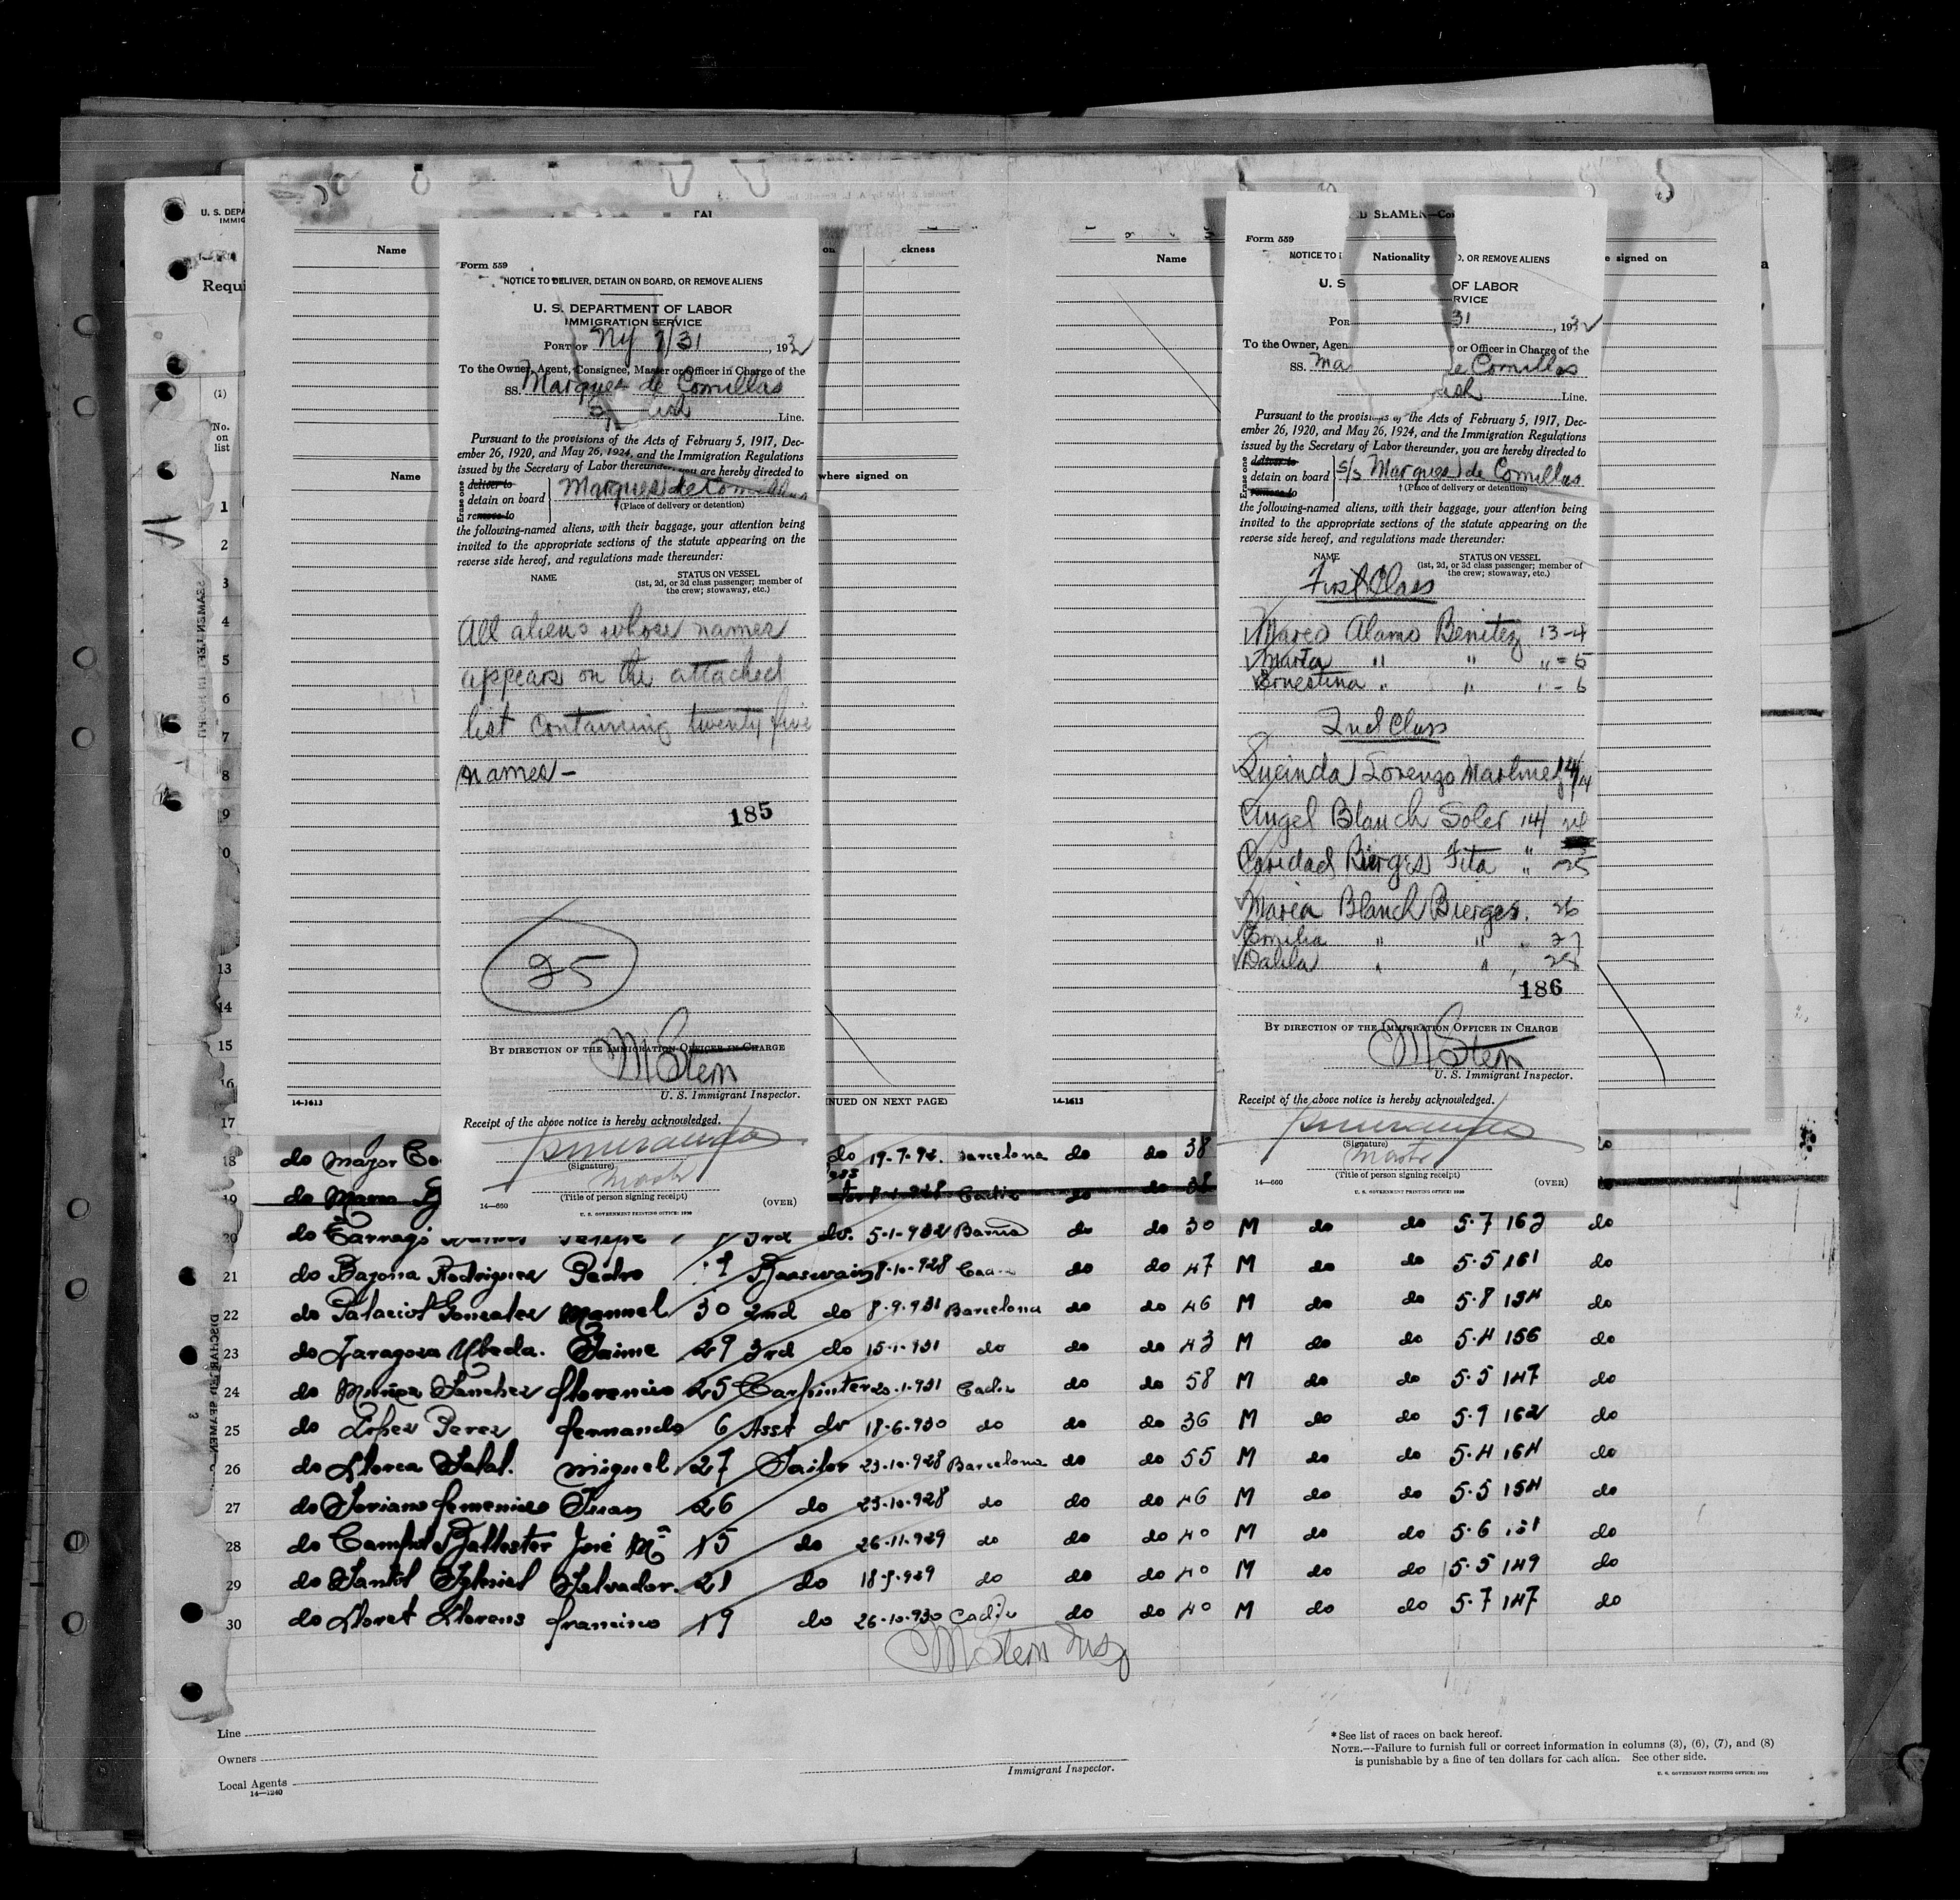 U. S. DEPA
IMMIG
Requi
(1)
No.
on
list
Name
on
ckness
Name
where signed on
Form 559
NOTICE TO DELIVER, DETAIN ON BOARD, OR REMOVE ALIENS
U. S. DEPARTMENT OF LABOR
IMMIGRATION SERVICE
PORT OF Ny 7/31, 1932
To the Owner, Agent, Consignee, Master or Officer in Charge of the
SS. Marques de Comillas
Line.
Pursuant to the provisions of the Acts of February 5, 1917, Dec-
ember 26, 1920, and May 26, 1924, and the Immigration Regulations
issued by the Secretary of Labor thereunder, you are hereby directed to
Erase one
deliver to
detain on board
remove to
Marques de Comillas
† (Place of delivery or detention)
the following-named aliens, with their baggage, your attention being
invited to the appropriate sections of the statute appearing on the
reverse side hereof, and regulations made thereunder:
NAME
STATUS ON VESSEL
(1st, 2d, or 3d class passenger; member of
the crew; stowaway, etc.)
All aliens whose names
appears on the attached
list containing twenty five
names -
185
25
BY DIRECTION OF THE IMMIGRATION OFFICER IN CHARGE
M Stern
U. S. Immigrant Inspector.
Receipt of the above notice is hereby acknowledged.
(Signature)
Master
(Title of person signing receipt)
14—660
(OVER)
U. S. GOVERNMENT PRINTING OFFICE: 1930
14-1613
NUED ON NEXT PAGE)
D SEAMEN—Co
Name
Nationality
e signed on
Form 559
NOTICE TO D
D, OR REMOVE ALIENS
U. S
OF LABOR
RVICE
POR
31, 1932
To the Owner, Agen
or Officer in Charge of the
SS. Ma
e Comillas
ish Line.
Pursuant to the provisions of the Acts of February 5, 1917, Dec-
ember 26, 1920, and May 26, 1924, and the Immigration Regulations
issued by the Secretary of Labor thereunder, you are hereby directed to
Erase one
deliver to
detain on board
remove to
S/S Marques de Comillas
† (Place of delivery or detention)
the following-named aliens, with their baggage, your attention being
invited to the appropriate sections of the statute appearing on the
reverse side hereof, and regulations made thereunder:
NAME
STATUS ON VESSEL
(1st, 2d, or 3d class passenger; member of
the crew; stowaway, etc.)
First Class
Alamo Benitez 13-4
Marta " " " - 5
Ernestina " " " - 6
2nd Class
Lucinda Lorenzo Martinez 14/14
Angel Blanch Soler 14/ 24
Caridad Bierges Fita " 25
Maria Blanch Bierges. 26
Emilia " " " 27
Dalila " " " 28
186
BY DIRECTION OF THE IMMIGRATION OFFICER IN CHARGE
M Stern
U. S. Immigrant Inspector.
Receipt of the above notice is hereby acknowledged.
(Signature)
Master
(Title of person signing receipt)
14—660
(OVER)
U. S. GOVERNMENT PRINTING OFFICE: 1930
14-1613
1
2
3
4
5
6
7
8
9
0
13
14
15
16
17
18 do Mayor Co do 19-7-92. Barcelona do do 38 do
19 do Cadiz do do 38
20 do Tarrago Felipe 3rd do. 5-1-932 Barna do do 30 M do do 5-7 163 do
21 do Bayona Rodriguez Pedro Boaswain 8-10-928 do do 47 M do do 5-5 161 do
22 do Palacios Gonzalez Manuel 30 2nd do 8-9-931 Barcelona do do 46 M do do 5-8 154 do
23 do Zaragoza Ubeda. Jaime 29 3rd do 15-1-931 do do do 43 M do do 5-4 156 do
24 do Muñoz Sanchez florencio 25 Carpinter 20-1-931 Cadiz do do 58 M do do 5-5 147 do
25 do Lopez Perez fernando 6 Asst do 18-6-930 do do do 36 M do do 5-9 162 do
26 do Llorca miguel 27 Sailor 23-10-928 Barcelona do do 55 M do do 5-4 164 do
27 do Soriano femenias Juan 26 do 23-10-928 do do do 46 M do do 5-5 154 do
28 do Campos Ballester José Mª 15 do 26-11-929 do do do 40 M do do 5-6 151 do
29 do Santos Iglesias Salvador. 21 do 18-9-929 do do do 40 M do do 5-5 149 do
30 do Lloret Llorens francisco 19 do 26-10-930 Cadiz do do 40 M do do 5-7 147 do
M Stern Insp
Line
Owners
Local Agents
14—1240
Immigrant Inspector.
* See list of races on back hereof.
NOTE.—Failure to furnish full or correct information in columns (3), (6), (7), and (8)
is punishable by a fine of ten dollars for each alien. See other side.
U. S. GOVERNMENT PRINTING OFFICE: 1929